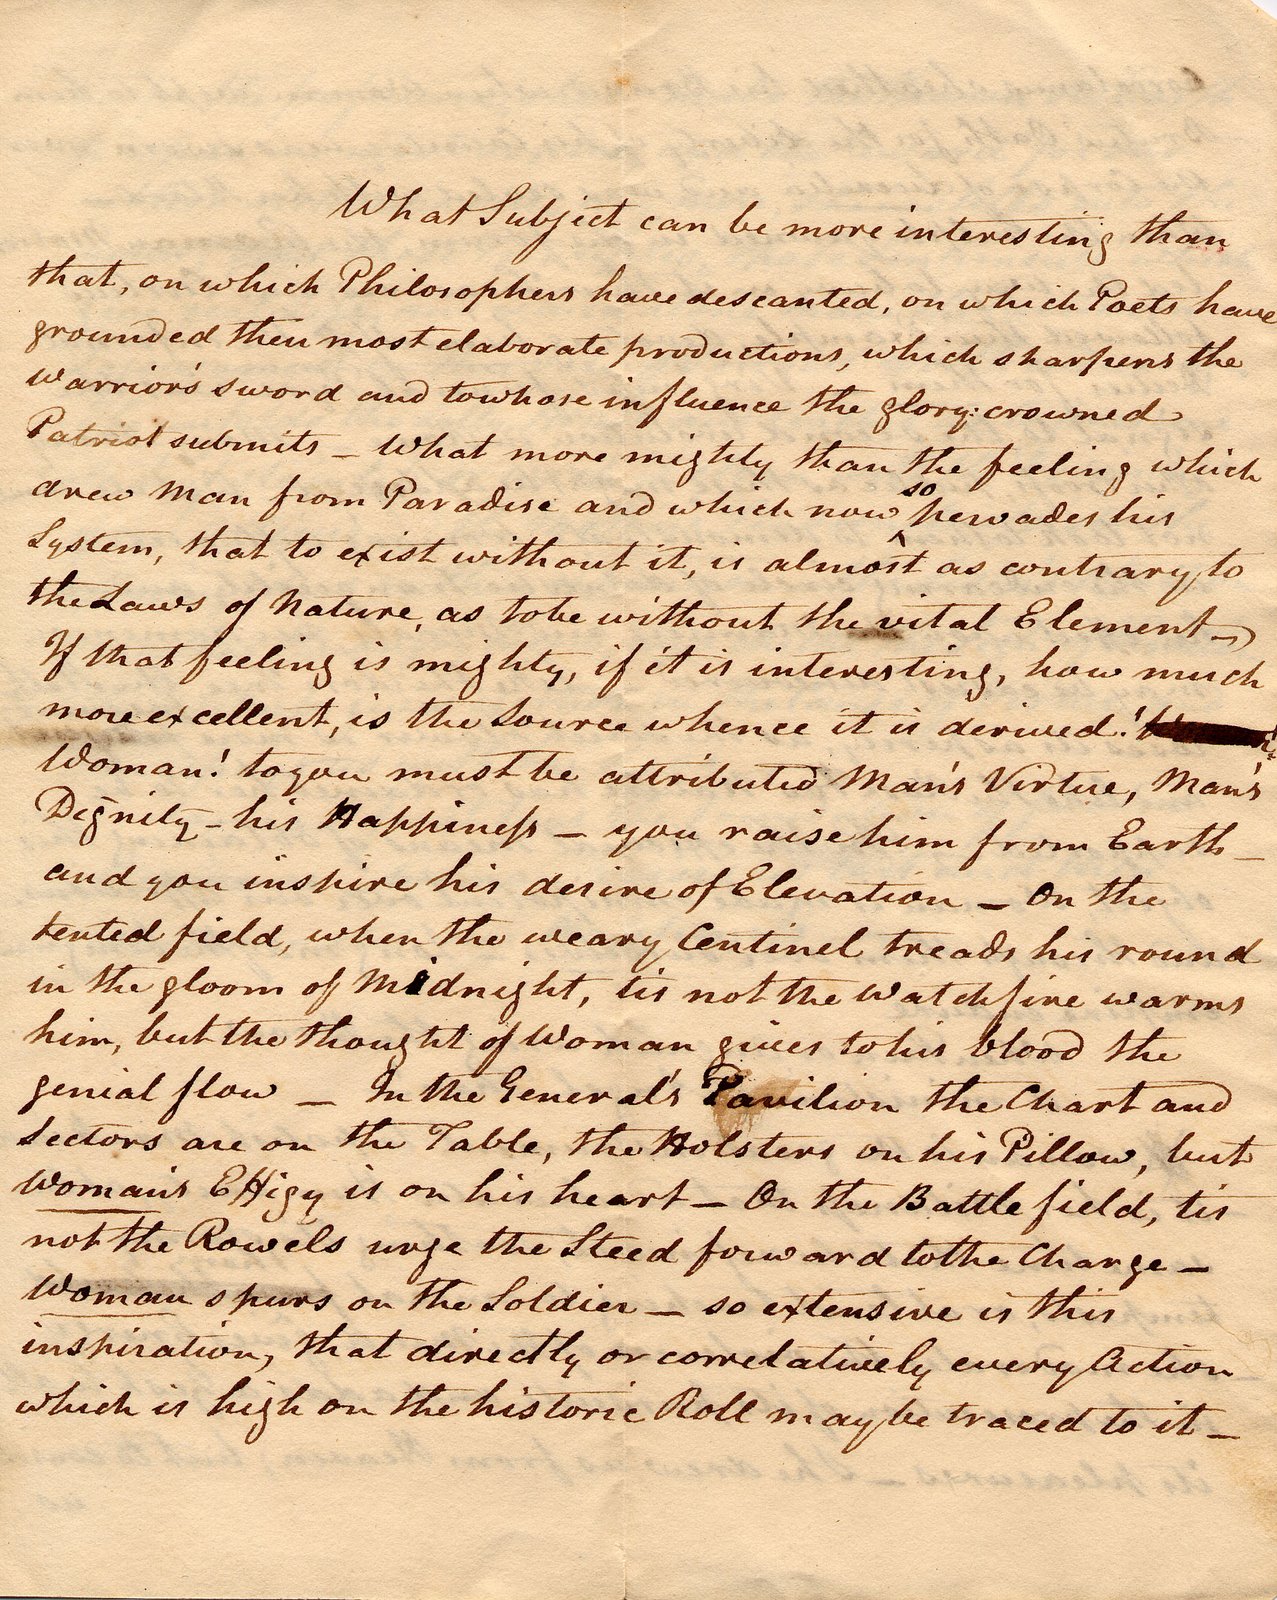 What Subject can be more interesting than
that, on which Philosophers have descanted, on which Poets have
grounded their most elaborate productions, which sharpens the
Warrior's sword and to whose influence the glory-crowned
Patriot submits – What more mighty than the feeling which
drew Man from Paradise and which now so pervades his
System, that to exist without it, is almost as contrary to
the Laws of Nature, as to be without the vital Element –
If that feeling is mighty, if it is interesting, how much
more excellent, is the Source whence it is derived!
Woman! to you must be attributed Man's Virtue, Man's
Dignity – his Happiness – you raise him from Earth –
and you inspire his desire of Elevation – On the
tented field, when the weary Centinel treads his round
in the gloom of Midnight, tis not the Watchfire warms
him, but the thought of Woman gives to his blood the
genial flow – In the General's Pavilion the Chart and
Sectors are on the Table, the Holsters on his Pillow, but
Woman's Effigy is on his heart – On the Battle field, tis
not the Rowels urge the Steed forward to the Charge –
Woman spurs on the Soldier – so extensive is this
inspiration, that directly or correlatively every Action
which is high on the historic Roll may be traced to it –